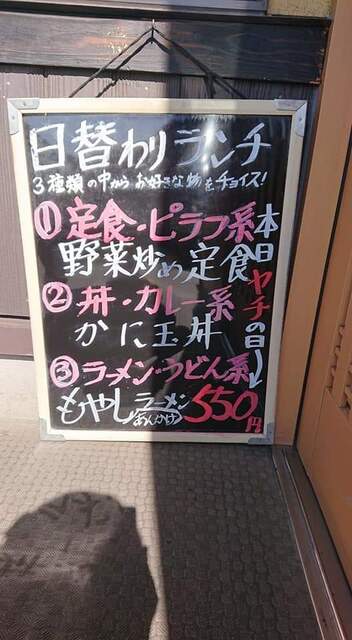 日替わりランチ
3種類の中からお好きな物をチョイス!
①定食・ピラフ系
野菜炒め定食
②丼・カレー系
かに玉丼
③ラメン・うどん系
もやしラーメン
あんかけ
550円
本日ヤチの日